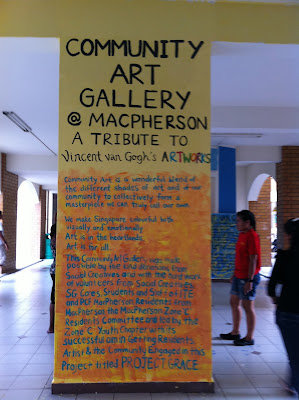 COMMUNITY
ART
GALLERY
@ MACPHERSON
A TRIBUTE TO
Vincent van Gogh's ARTWORKS
Community Art is a wonderful blend of
the different shades of art and of our
community to collectively form a
masterpiece we can truly call our own.
We make Singapore colourful both
visually and emotionally.
Art is in the heartlands,
Art is for all.
This Community Art Gallery was made
possible by the kind donations from
Social Creatives and with the hard work
of volunteers from Social Creatives,
SG Cares, Students and Staff of ITE
and PCF MacPherson, Residents from
MacPherson, the MacPherson Zone 'C'
Residents Committee and led by the
Zone 'C' Youth Chapter with its
successful aim in Getting Residents,
Artist & the Community Engaged in this
Project titled PROJECT GRACE.